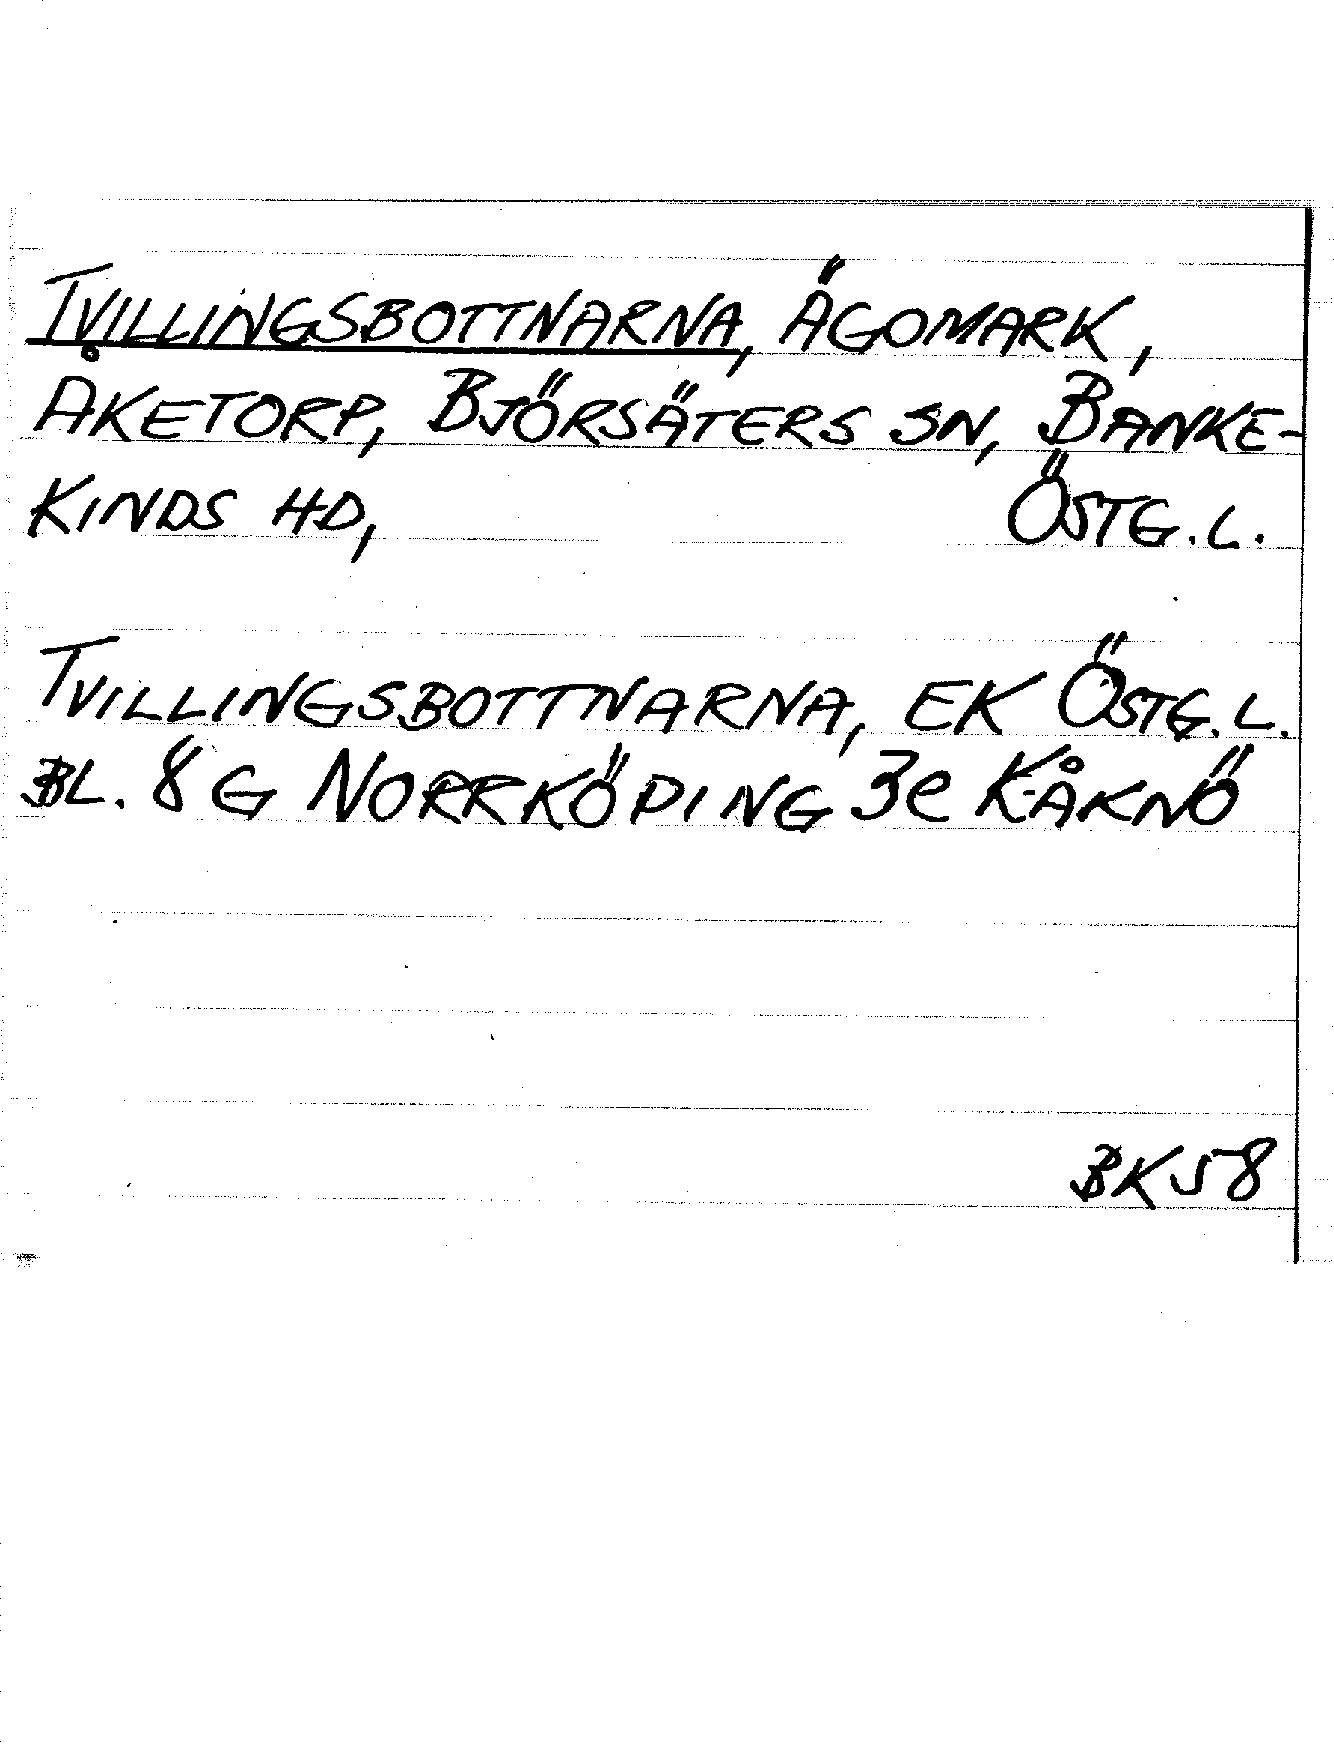 TVILLINGSBOTTNARNA, ÄGOMARK,
ÅKETORP, BJÖRSÄTERS SN, BANKE-
KINDS HD, ÖSTG.L.
TVILLINGSBOTTNARNA, EK ÖSTG.L.
BL. 8G NORRKÖPING 3e KÅKNÖ
BK58